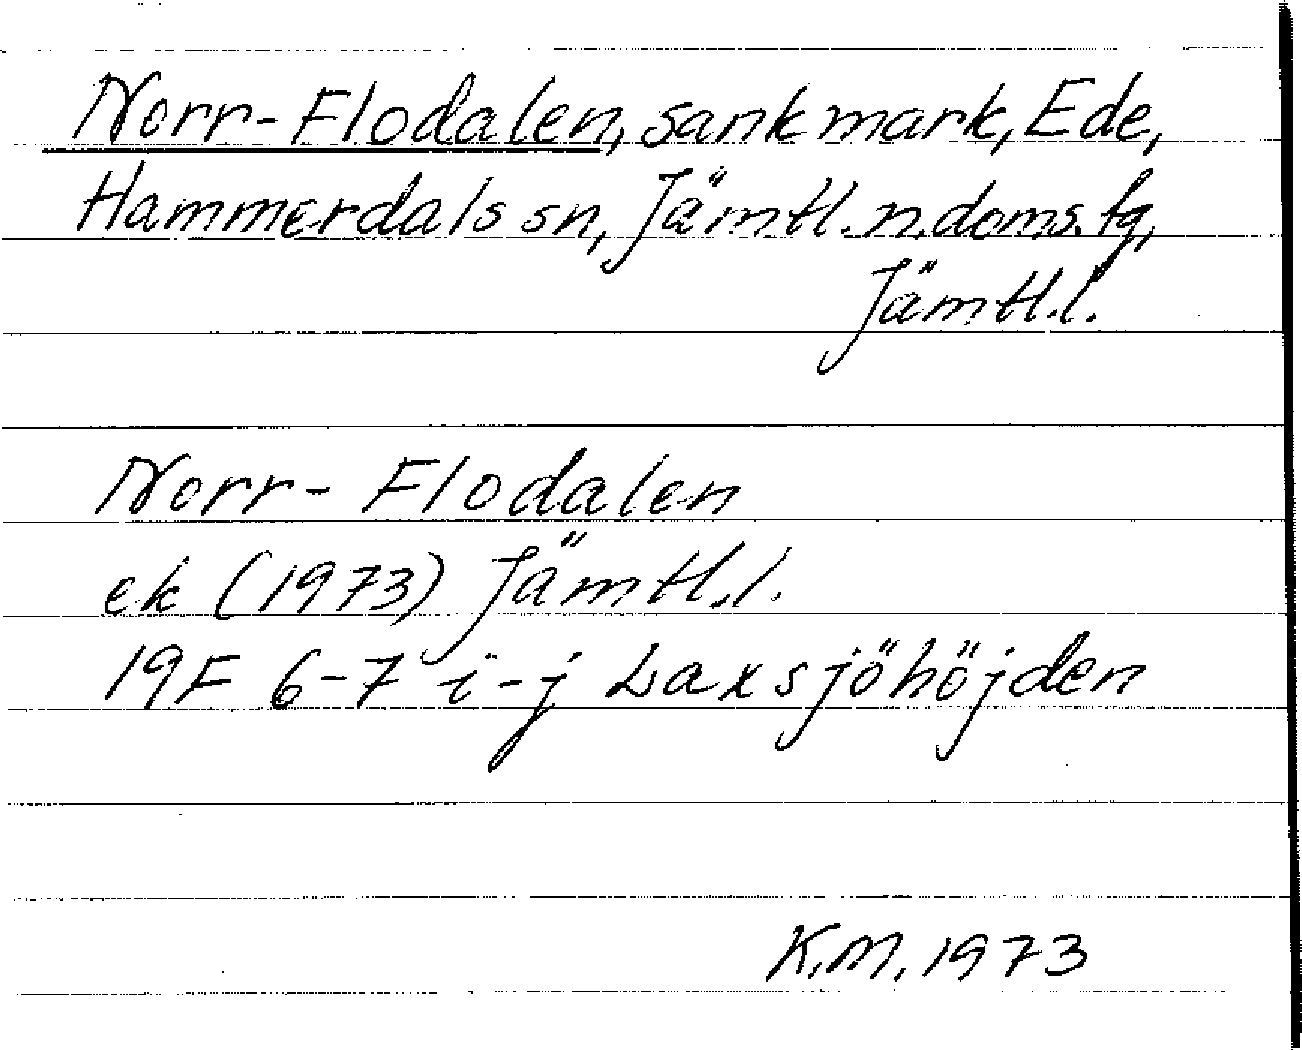 Norr-Flodalen, sankmark, Ede,
Hammerdals sn, Jämtl. n. doms. tg,
Jämtl. l.
Norr-Flodalen
ek (1973) Jämtl. l.
19F 6-7 i-j Laxsjöhöjden
K.M. 1973